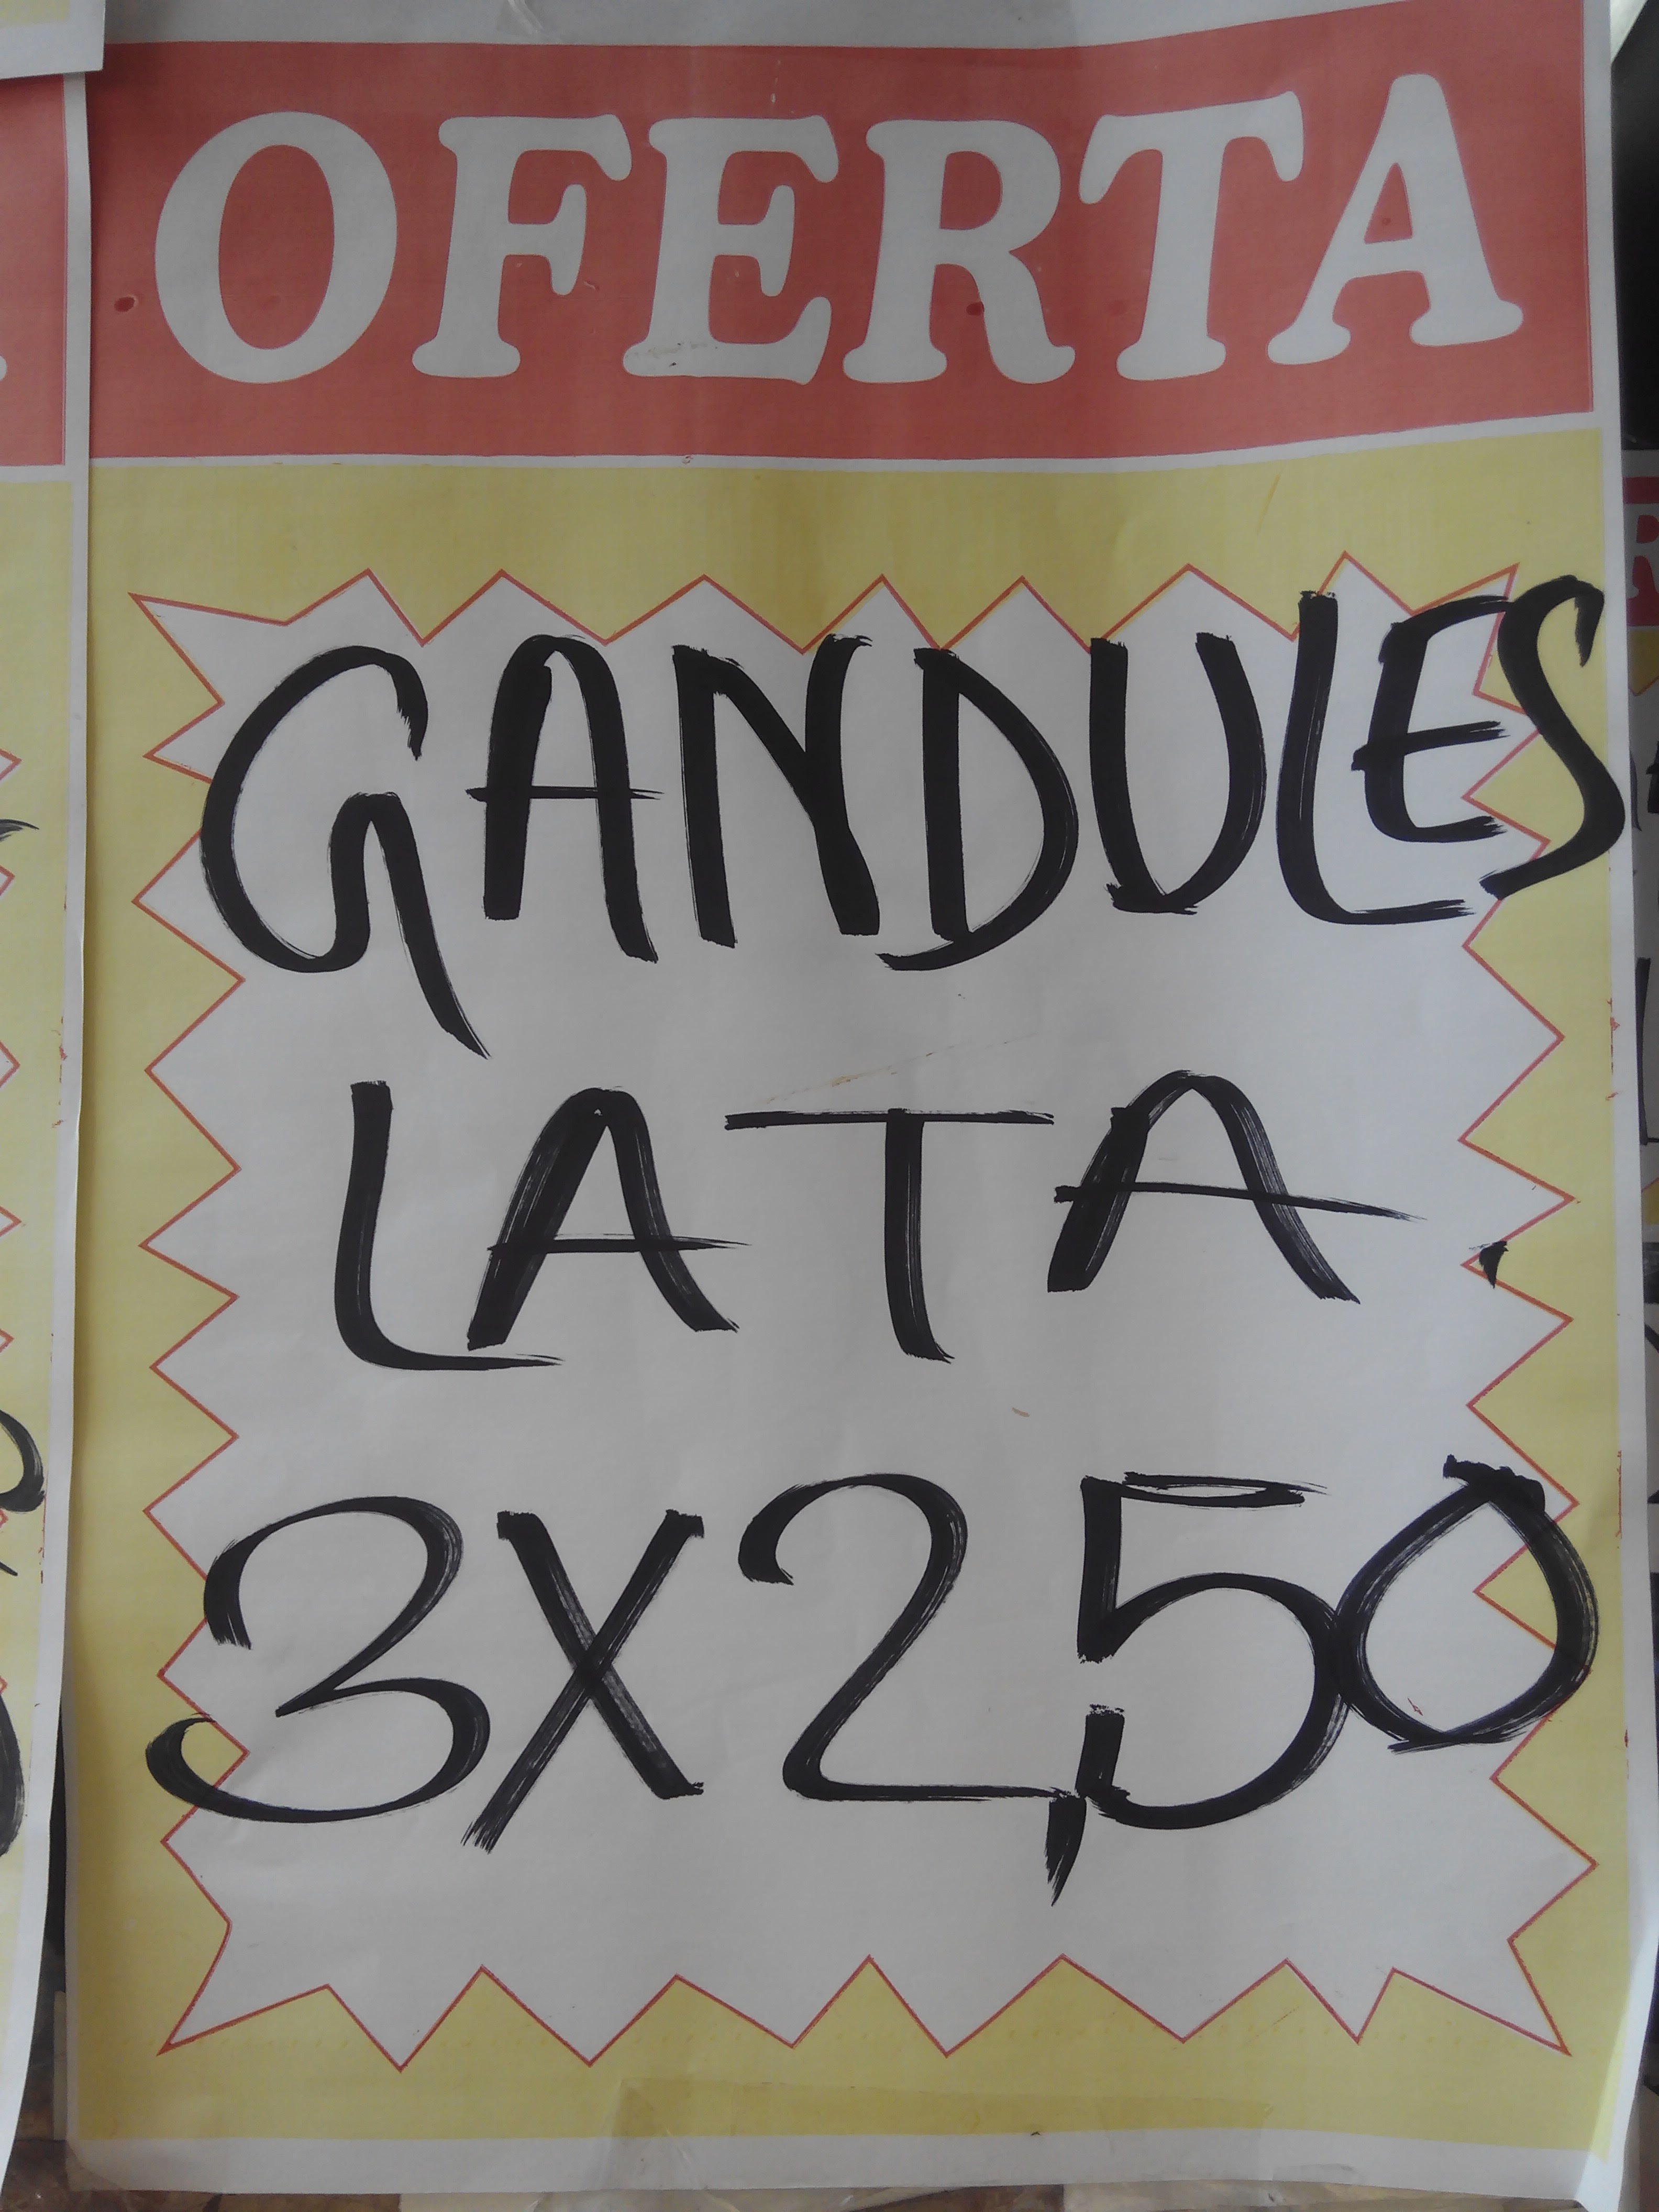 OFERTA
GANDULES
LATA
3X2,50